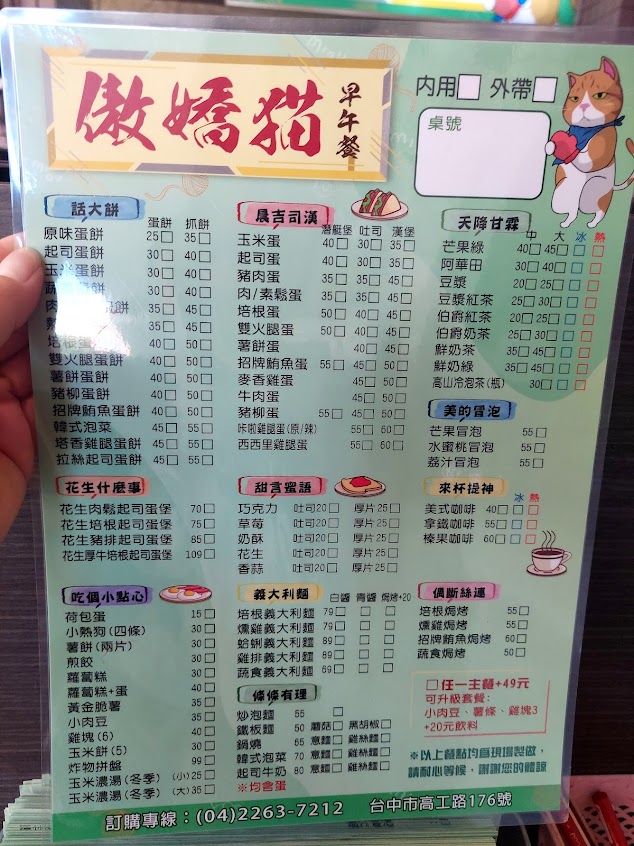 傲嬌猫 早午餐
內用□ 外帶□
桌號
話大餅 蛋餅 抓餅
原味蛋餅 25□ 35□
起司蛋餅 30□ 40□
玉米蛋餅 30□ 40□
30□ 40□
35□ 45□
35□ 45□
培根蛋餅 40□ 50□
雙火腿蛋餅 40□ 50□
薯餅蛋餅 40□ 50□
豬柳蛋餅 40□ 50□
招牌鮪魚蛋餅 40□ 50□
韓式泡菜 45□ 55□
塔香雞腿蛋餅 45□ 55□
拉絲起司蛋餅 45□ 55□
晨吉司漢 潛艇堡 吐司 漢堡
玉米蛋 40□ 30□ 35□
起司蛋 40□ 30□ 35□
豬肉蛋 45□ 35□ 45□
肉/素鬆蛋 45□ 35□ 45□
培根蛋 50□ 40□ 45□
雙火腿蛋 50□ 40□ 45□
薯餅蛋 40□ 50□
招牌鮪魚蛋 55□ 45□ 50□
麥香雞蛋 45□ 50□
牛肉蛋 45□ 50□
豬柳蛋 55□ 45□ 50□
咔啦雞腿蛋(原/辣) 55□ 60□
西西里雞腿蛋 55□ 60□
天降甘霖 中 大 冰 熱
芒果綠 40□ 45□ □ □
阿華田 30□ 40□ □ □
豆漿 20□ 25□ □ □
豆漿紅茶 25□ 30□ □ □
伯爵紅茶 20□ 25□ □ □
伯爵奶茶 25□ 30□ □ □
鮮奶茶 35□ 45□ □ □
鮮奶綠 35□ 45□ □ □
高山冷泡茶(瓶) 30□ □ □
美的冒泡
芒果冒泡 55□
水蜜桃冒泡 55□
荔汁冒泡 55□
花生什麼事
花生肉鬆起司蛋堡 70□
花生培根起司蛋堡 75□
花生豬排起司蛋堡 85□
花生厚牛培根起司蛋堡 109□
甜言蜜語
巧克力 吐司20□ 厚片25□
草莓 吐司20□ 厚片25□
奶酥 吐司20□ 厚片25□
花生 吐司20□ 厚片25□
香蒜 吐司20□ 厚片25□
來杯提神 冰 熱
美式咖啡 40□ □
拿鐵咖啡 55□ □
榛果咖啡 60□ □
吃個小點心
荷包蛋 15□
小熱狗(四條) 30□
薯餅(兩片) 30□
煎餃 30□
蘿蔔糕 30□
蘿蔔糕+蛋 40□
黃金脆薯 35□
小肉豆 40□
雞塊(6) 40□
玉米餅(5) 30□
炸物拼盤 99□
玉米濃湯(冬季) (小)25□
玉米濃湯(冬季) (大)35□
義大利麵 白醬 青醬 焗烤+20
培根義大利麵 79□ □ □
燻雞義大利麵 79□ □ □
蛤蜊義大利麵 89□ □ □
雞排義大利麵 89□ □ □
蔬食義大利麵 69□ □ □
條條有理
炒泡麵 55 □
鐵板麵 50 蘑菇□ 黑胡椒□
鍋燒 65 意麵□ 雞絲麵□
韓式泡菜 70 意麵□ 雞絲麵□
起司牛奶 80 意麵□ 雞絲麵□
※均含蛋
偶斷絲連
培根焗烤 55□
燻雞焗烤 55□
招牌鮪魚焗烤 60□
蔬食焗烤 50□
□任一主餐+49元
可升級套餐:
小肉豆、薯條、雞塊3
+20元飲料
※以上餐點均自現場製做,
請耐心等候,謝謝您的體諒
訂購專線:(04)2263-7212 台中市高工路176號